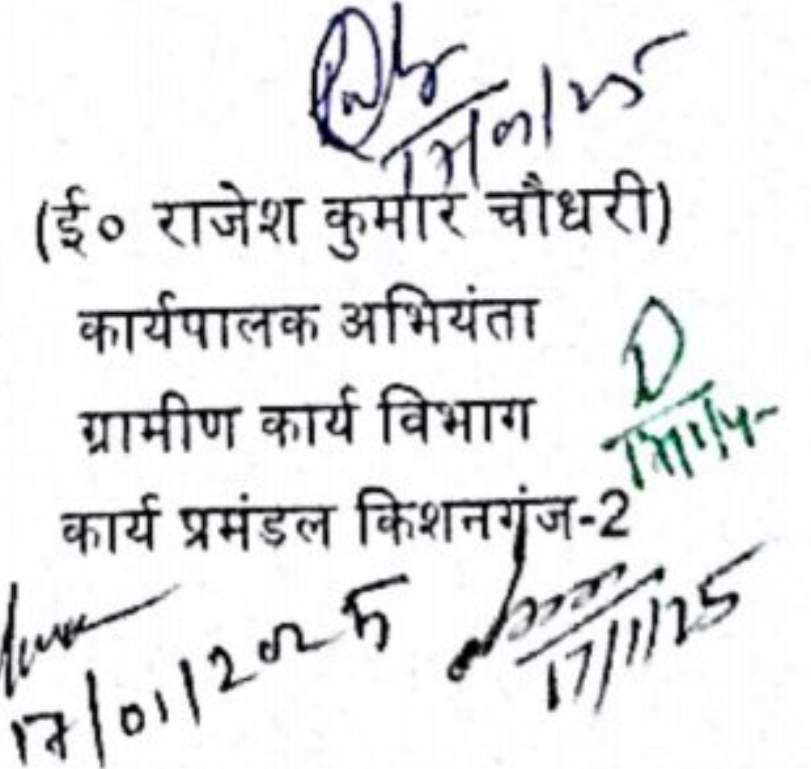 17/01/25
(ई० राजेश कुमार चौधरी)
कार्यपालक अभियंता
ग्रामीण कार्य विभाग
कार्य प्रमंडल किशनगंज-2
17/01/2025
17/1/25